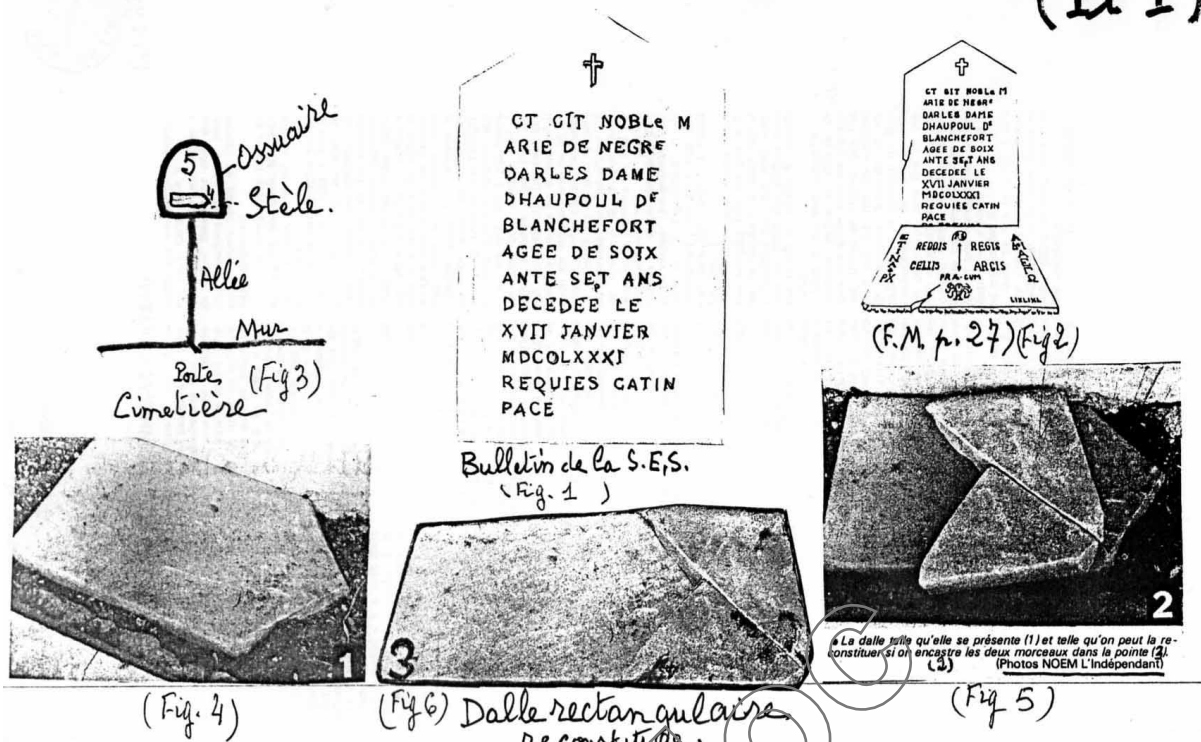 5
Ossuaire
Stèle.
Allée
Mur
Porte
(Fig 3)
Cimetière
CT GIT NOBLe M
ARIE DE NEGRE
DARLES DAME
DHAUPOUL DE
BLANCHEFORT
AGEE DE SOIX
ANTE SEpT ANS
DECEDEE LE
XVII JANVIER
MDCOLXXXI
REQUIES CATIN
PACE
Bulletin de la S.E.S.
(Fig. 1)
CT GIT NOBLe M
ARIE DE NEGRe
DARLES DAME
DHAUPOUL DE
BLANCHEFORT
AGEE DE SOIX
ANTE SEpT ANS
DECEDEE LE
XVII JANVIER
MDCOLXXXI
REQUIES CATIN
PACE
REDDIS REGIS
CELLIS ARCIS
PRÆ-CUM
(F.M. p. 27) (Fig 2)
1
(Fig. 4)
3
(Fig 6) Dalle rectangulaire
2
La dalle telle qu'elle se présente (1) et telle qu'on peut la re-
constituer si on encastre les deux morceaux dans la pointe (2).
(2)
(Photos NOEM L'Indépendant)
(Fig 5)